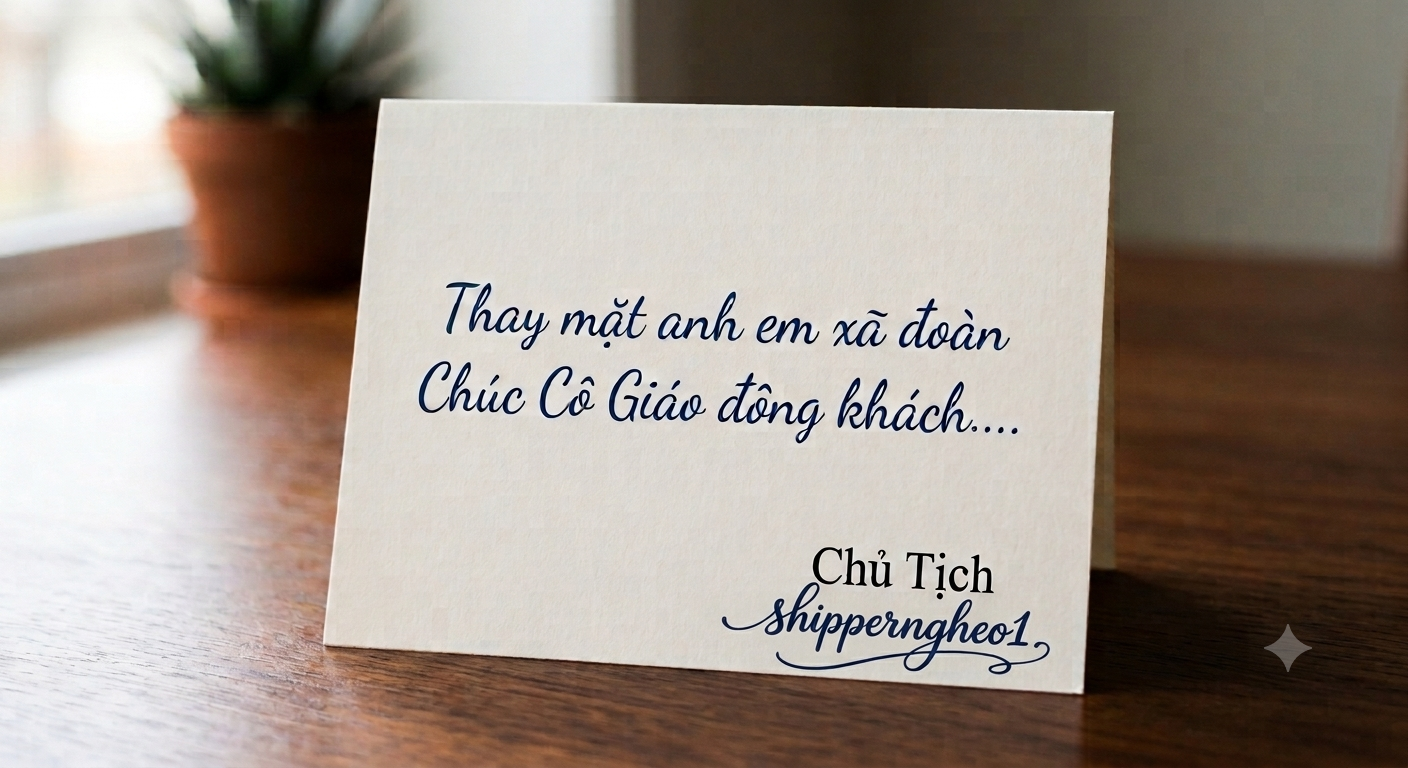 Thay mặt anh em xã đoàn
Chúc Cô Giáo đông khách....
Chủ Tịch
shipperngheo1